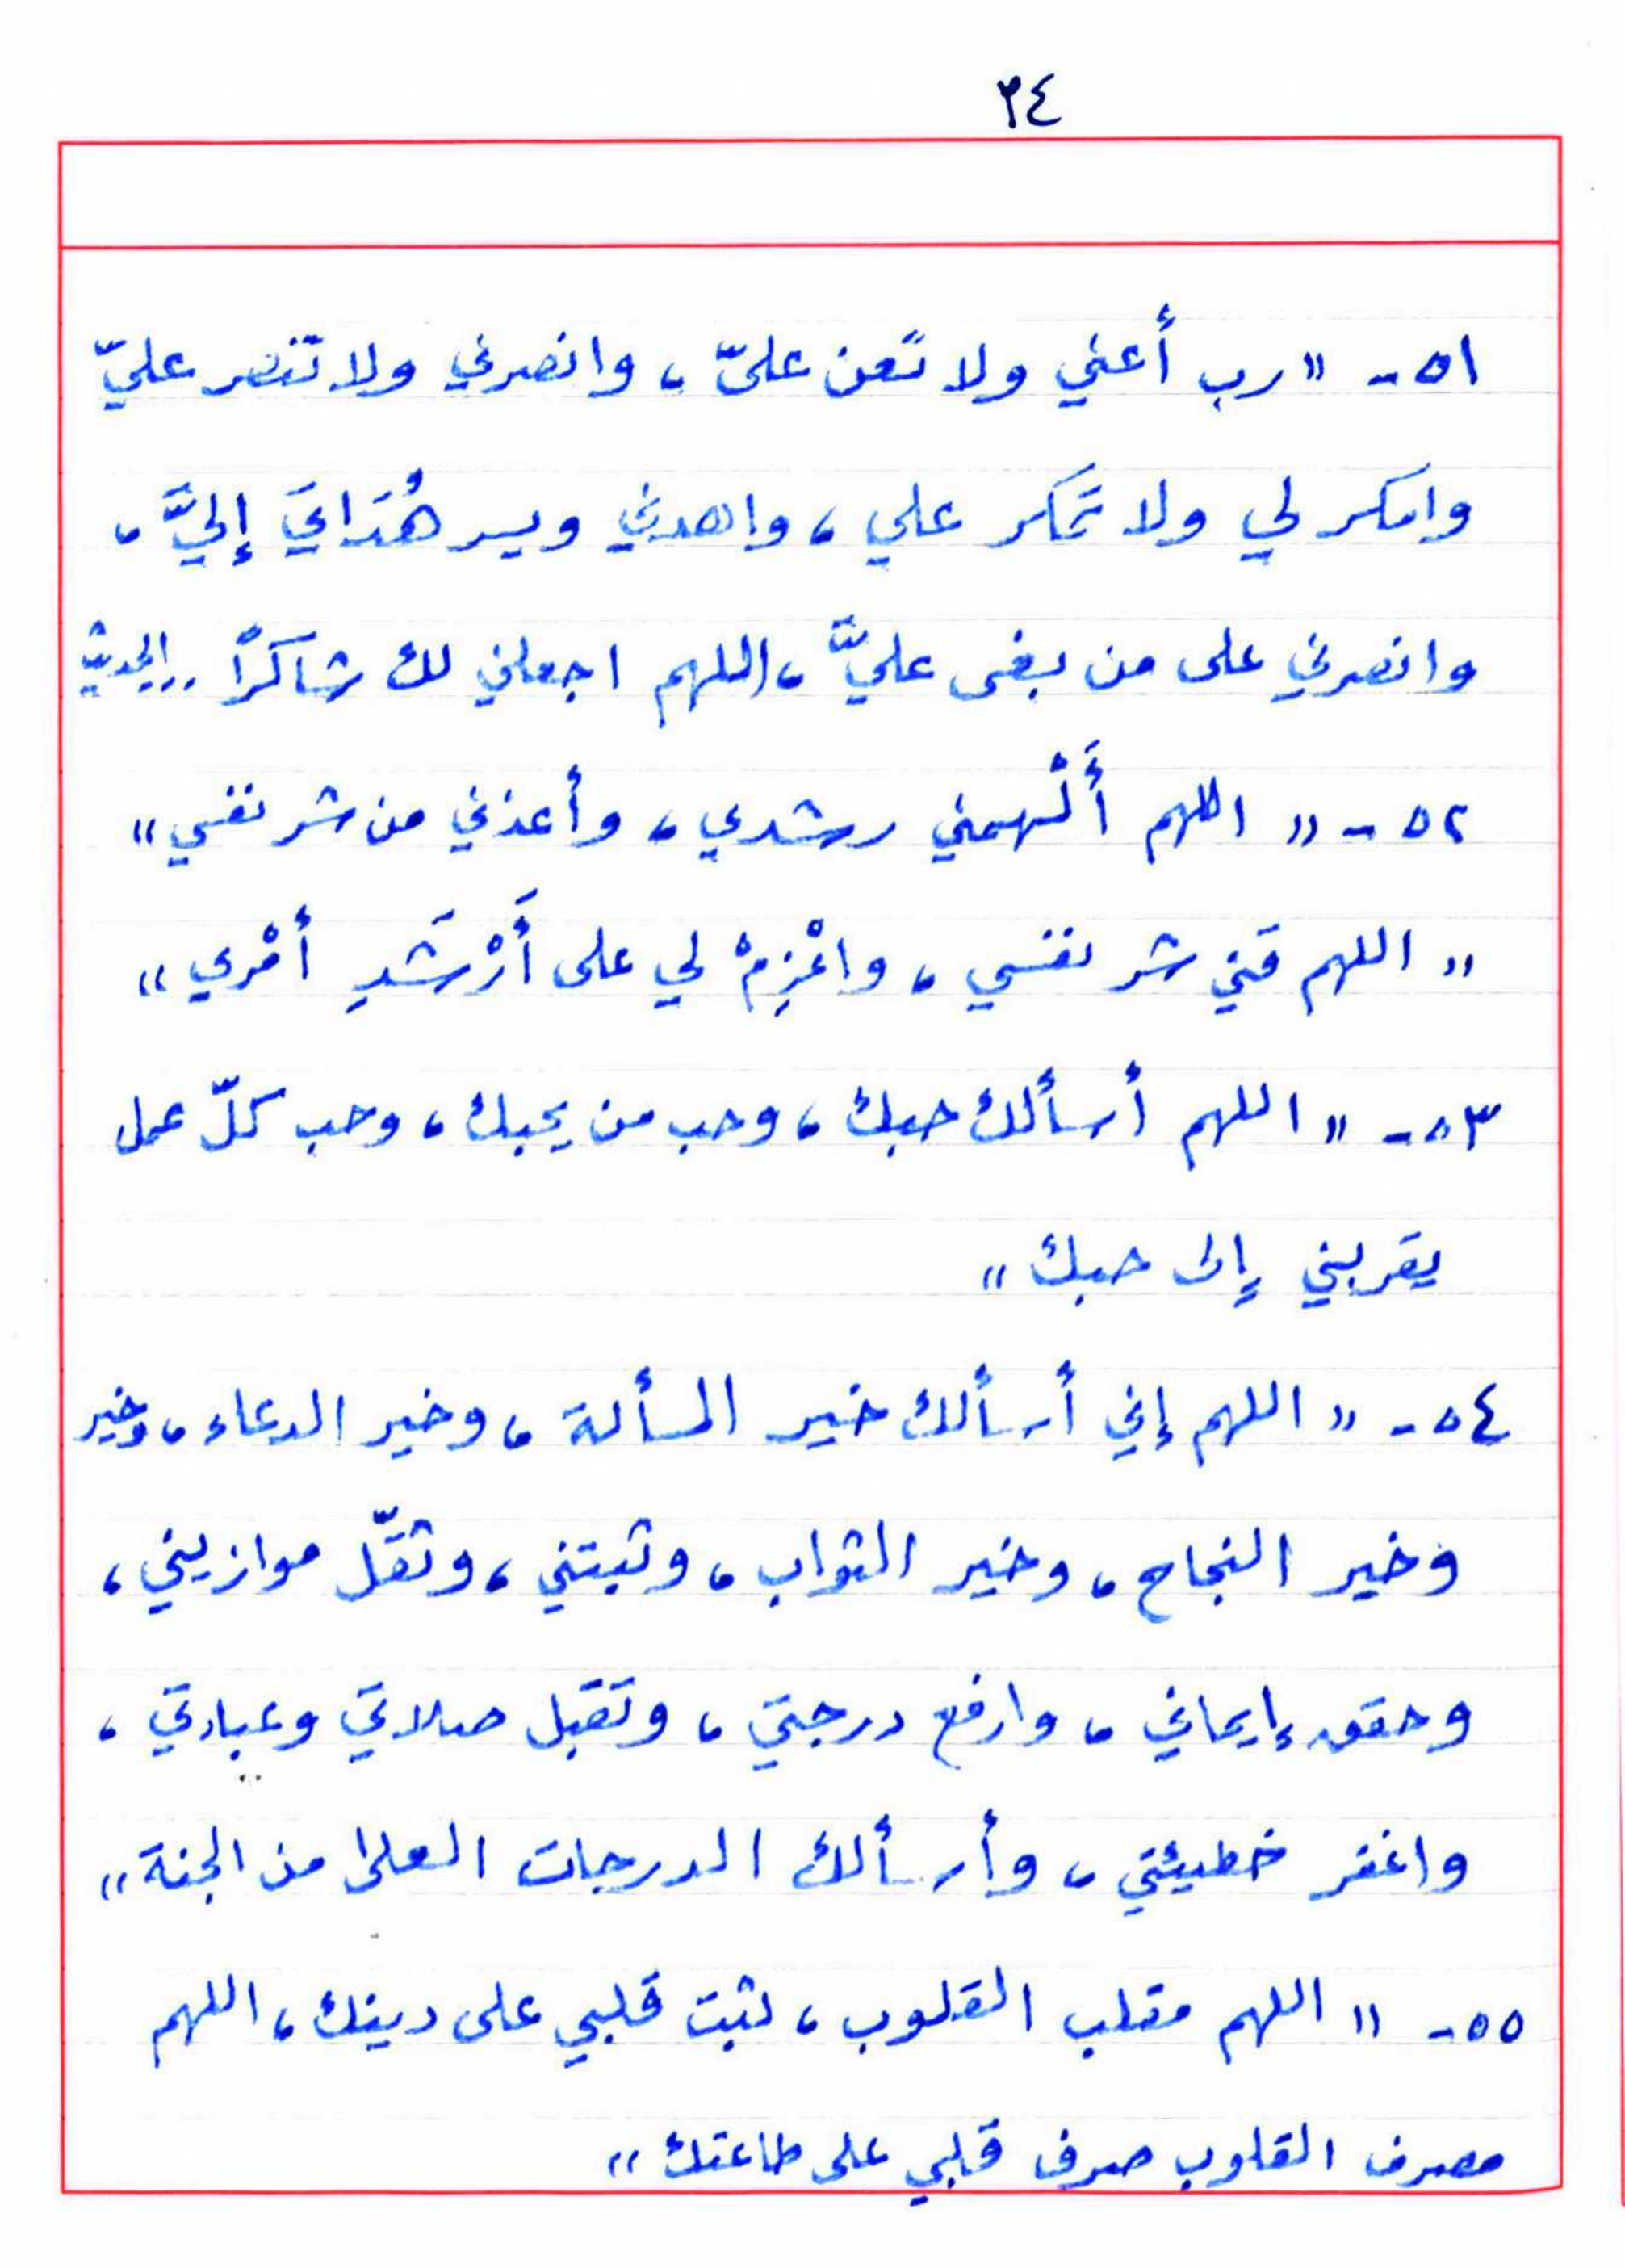 ٣٤
٥١ - "رب أعني ولا تعن عليّ، وانصرني ولا تنصر عليّ
وامكر لي ولا تمكر علي، واهدني ويسر هُدَايَ إليَّ،
وانصرني على من بغى عليَّ، اللهم اجعلني لك شاكرًا .. الحديث
٥٢ - "اللهم أَلْهمني رشدي، وأعذني من شر نفسي"
"اللهم قني شر نفسي، واعْزِمْ لي على أَرْشَدِ أمْري"
٥٣ - "اللهم أسألك حبك، وحب من يحبك، وحب كلّ عمل
يقربني إلى حبك"
٥٤ - "اللهم إني أسألك خير المسألة، وخير الدعاء، وخير
وخير النجاح، وخير الثواب، وثبتني، وثقّل موازيني،
وحقق إيماني، وارفع درجتي، وتقبل صلاتي وعبادتي،
واغفر خطيئتي، وأسألك الدرجات العلى من الجنة"
٥٥ - "اللهم مقلب القلوب، ثبت قلبي على دينك، اللهم
مصرف القلوب صرف قلبي على طاعتك"